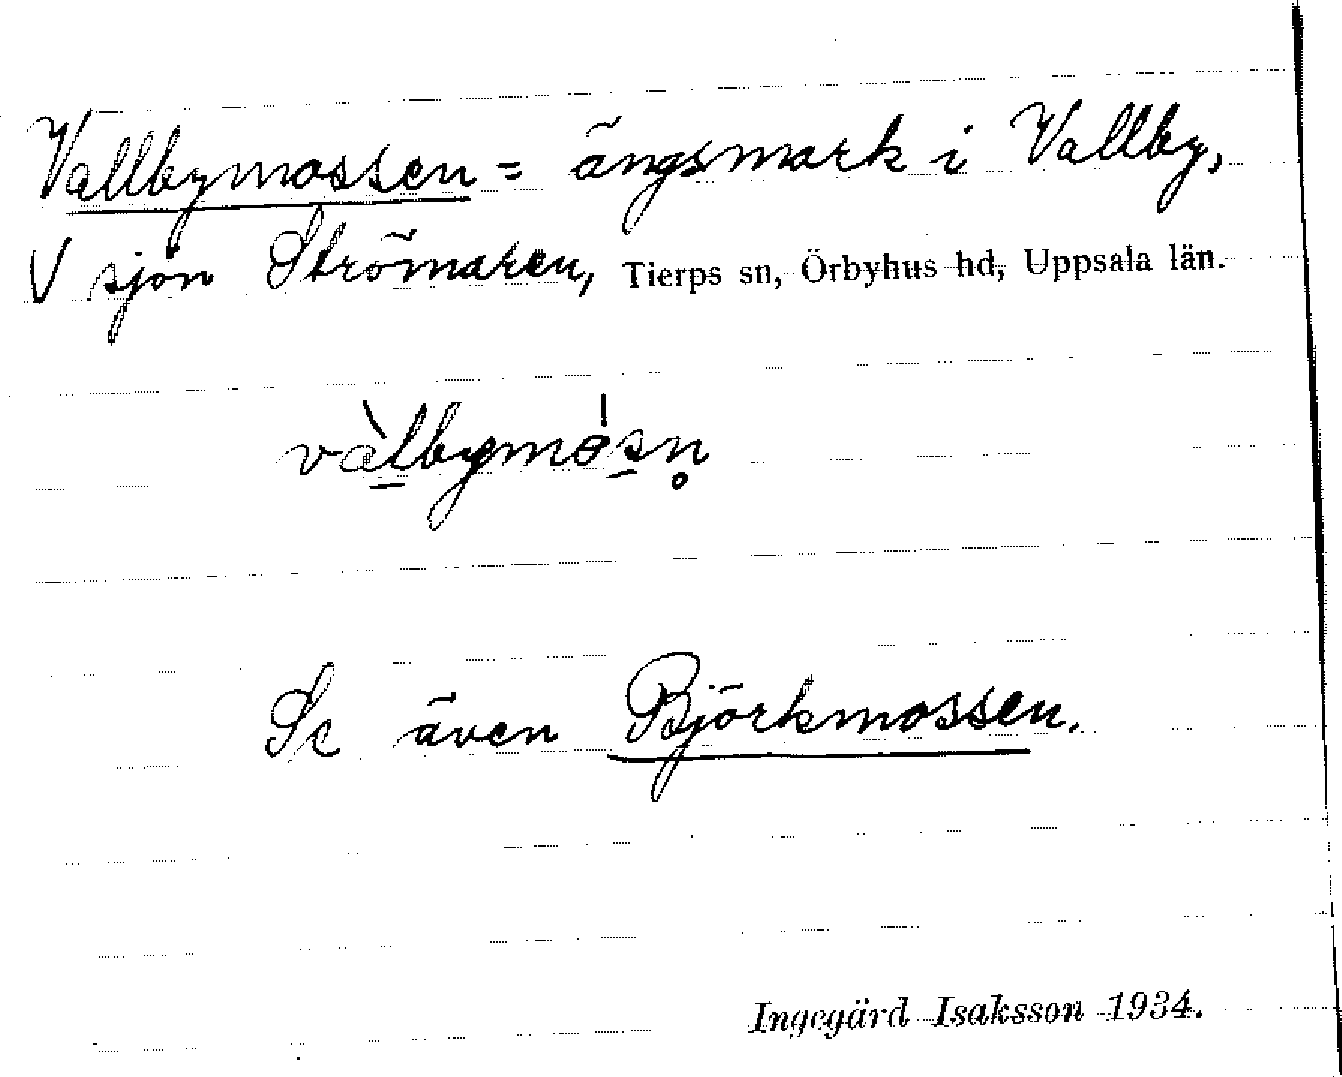 Vallbymossen = ängsmark i Vallby,
V sjön Strömaren, Tierps sn, Örbyhus hd, Uppsala län.
vàlbymósn̥
Se även Björkmossen.
Ingegärd Isaksson 1934.